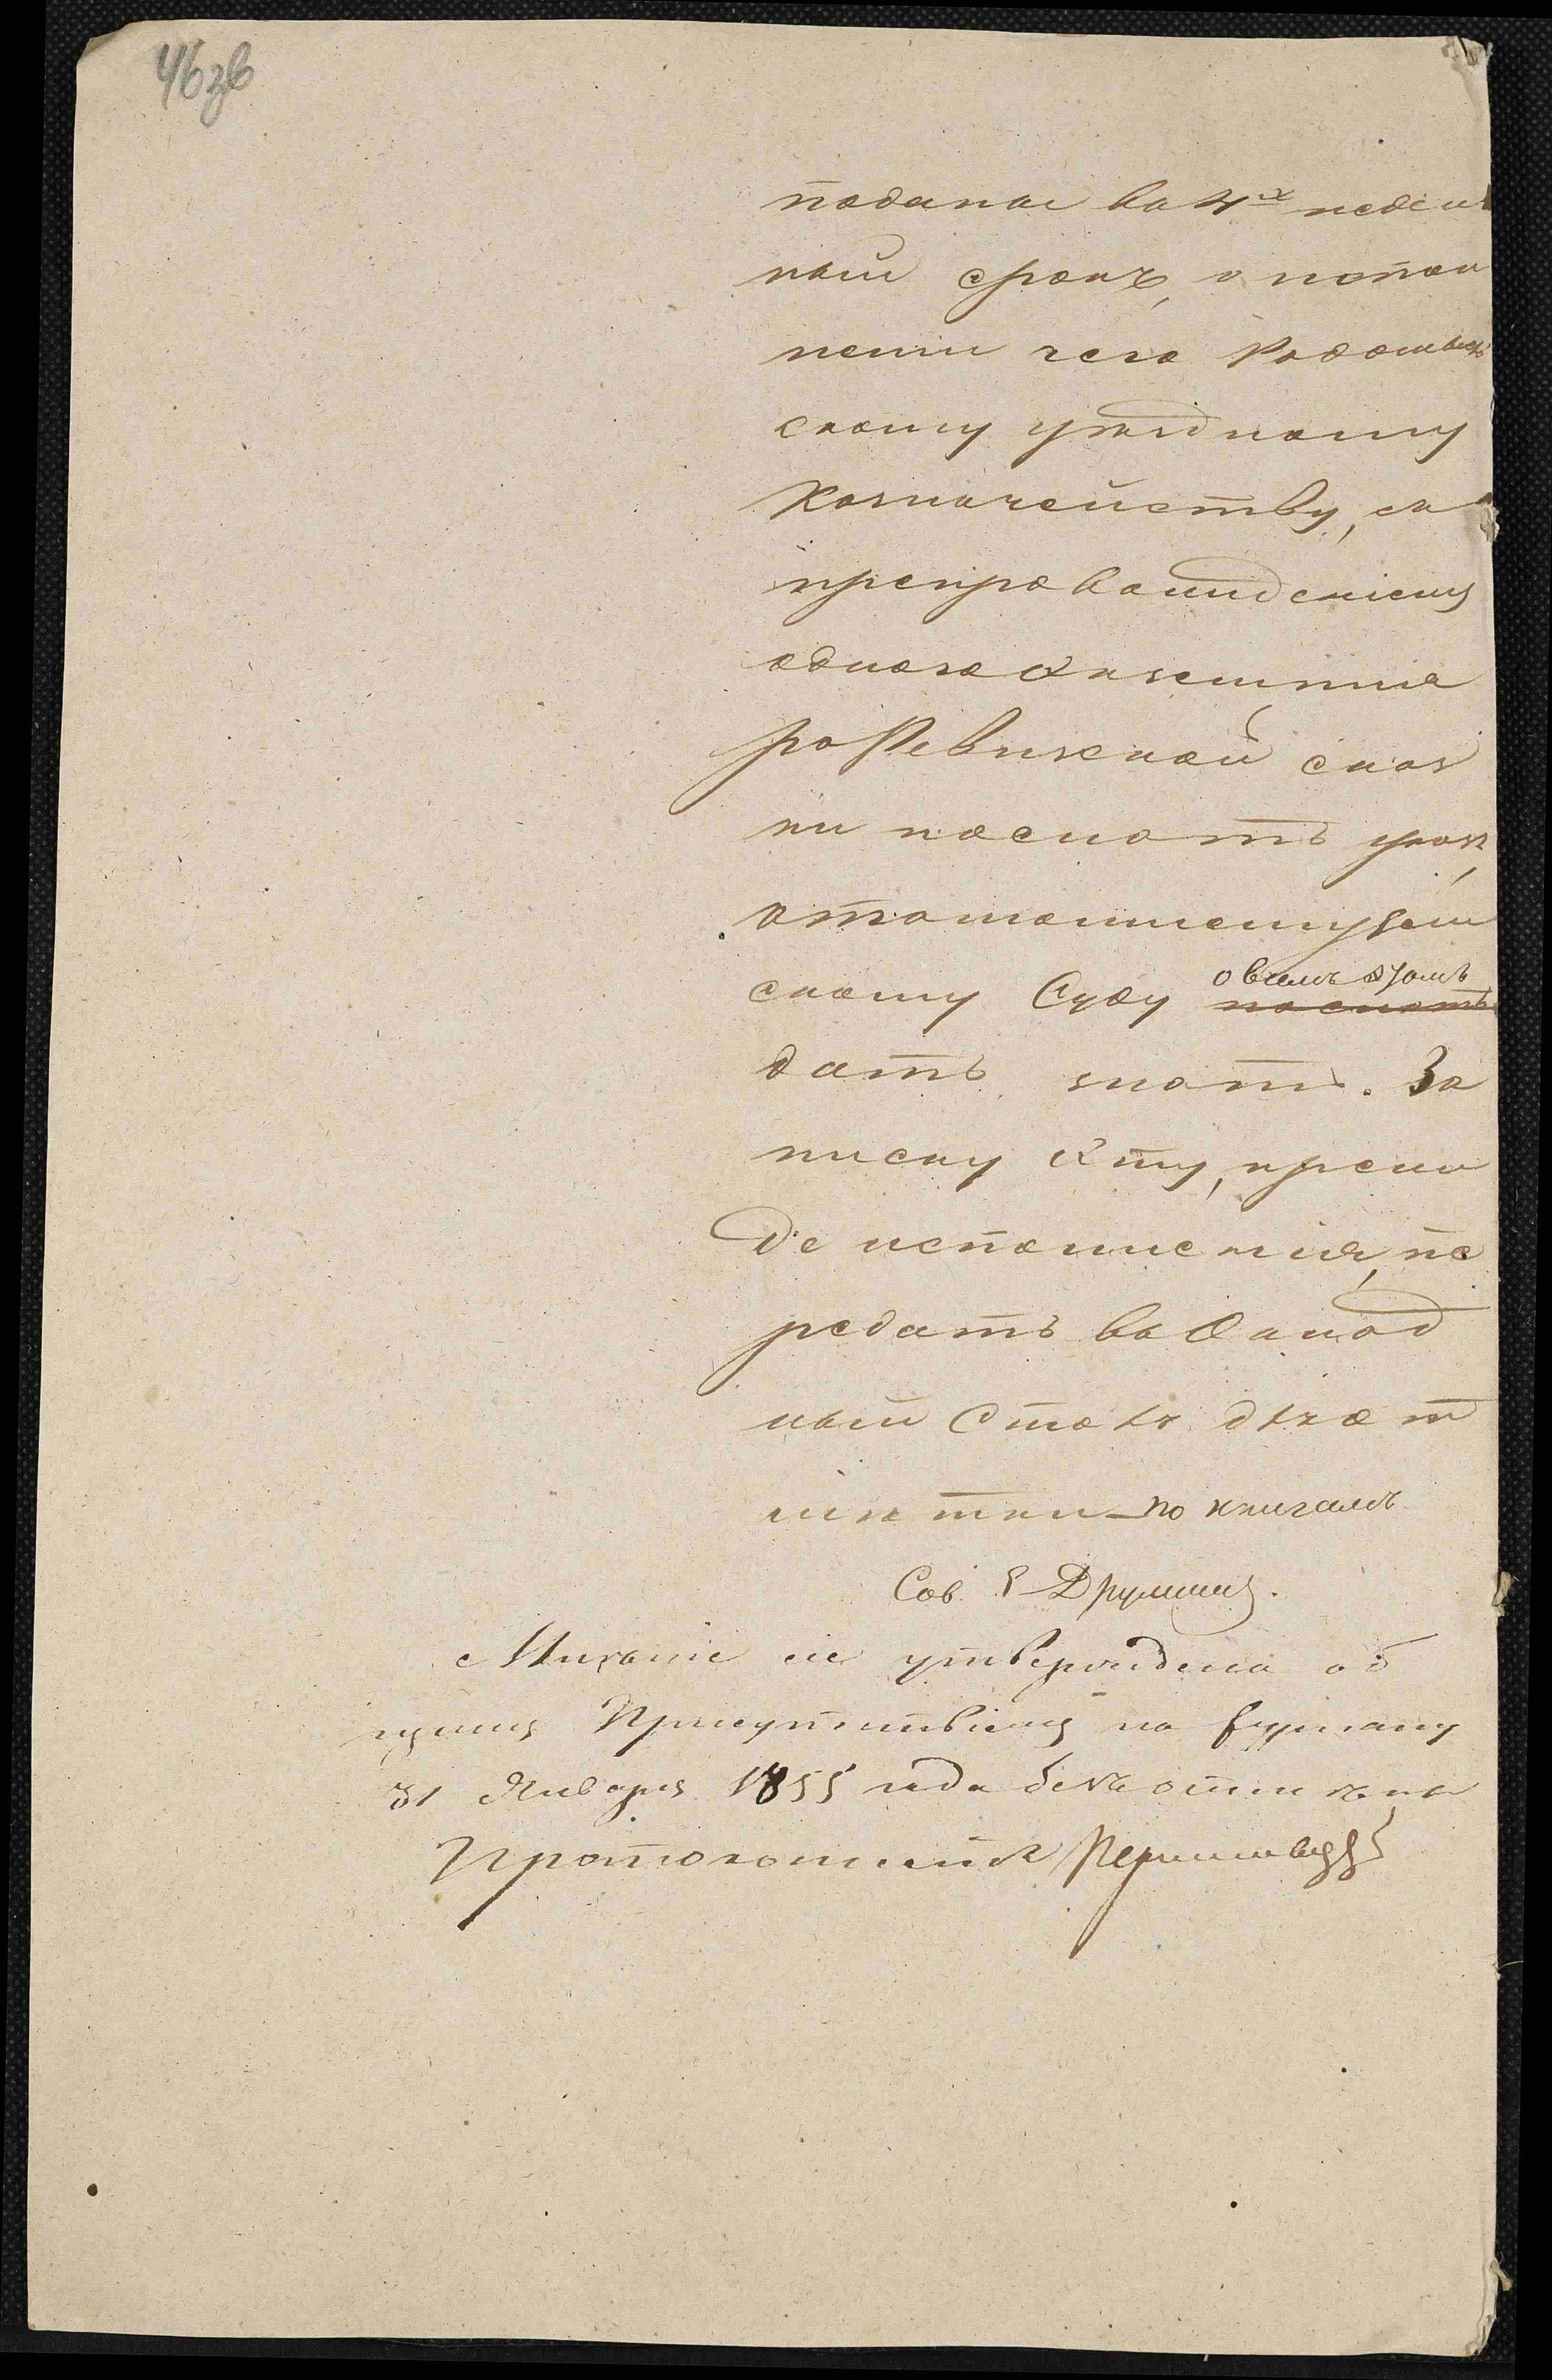 46 зв
поданы въ 4х недѣль
ный срокъ, о испол
неніи чего Радомысль
скому уѣздному
Казначейству, съ
препровожденіемъ
одного экземпля
ра Ревизской сказ
ки послать указ,
а тамошнему Зем
скому Суду о всемъ этомъ
дать знать. За
писку эту, преж
де исполненія, пе
редать въ Оклад
ный Столъ для от
мѣтки по книгамъ
Сов.
Мнѣніе сіе утверждено об
щимъ Присутствіемъ по журналу
31 Января 1855 года безъ отмѣны
Протоколистъ